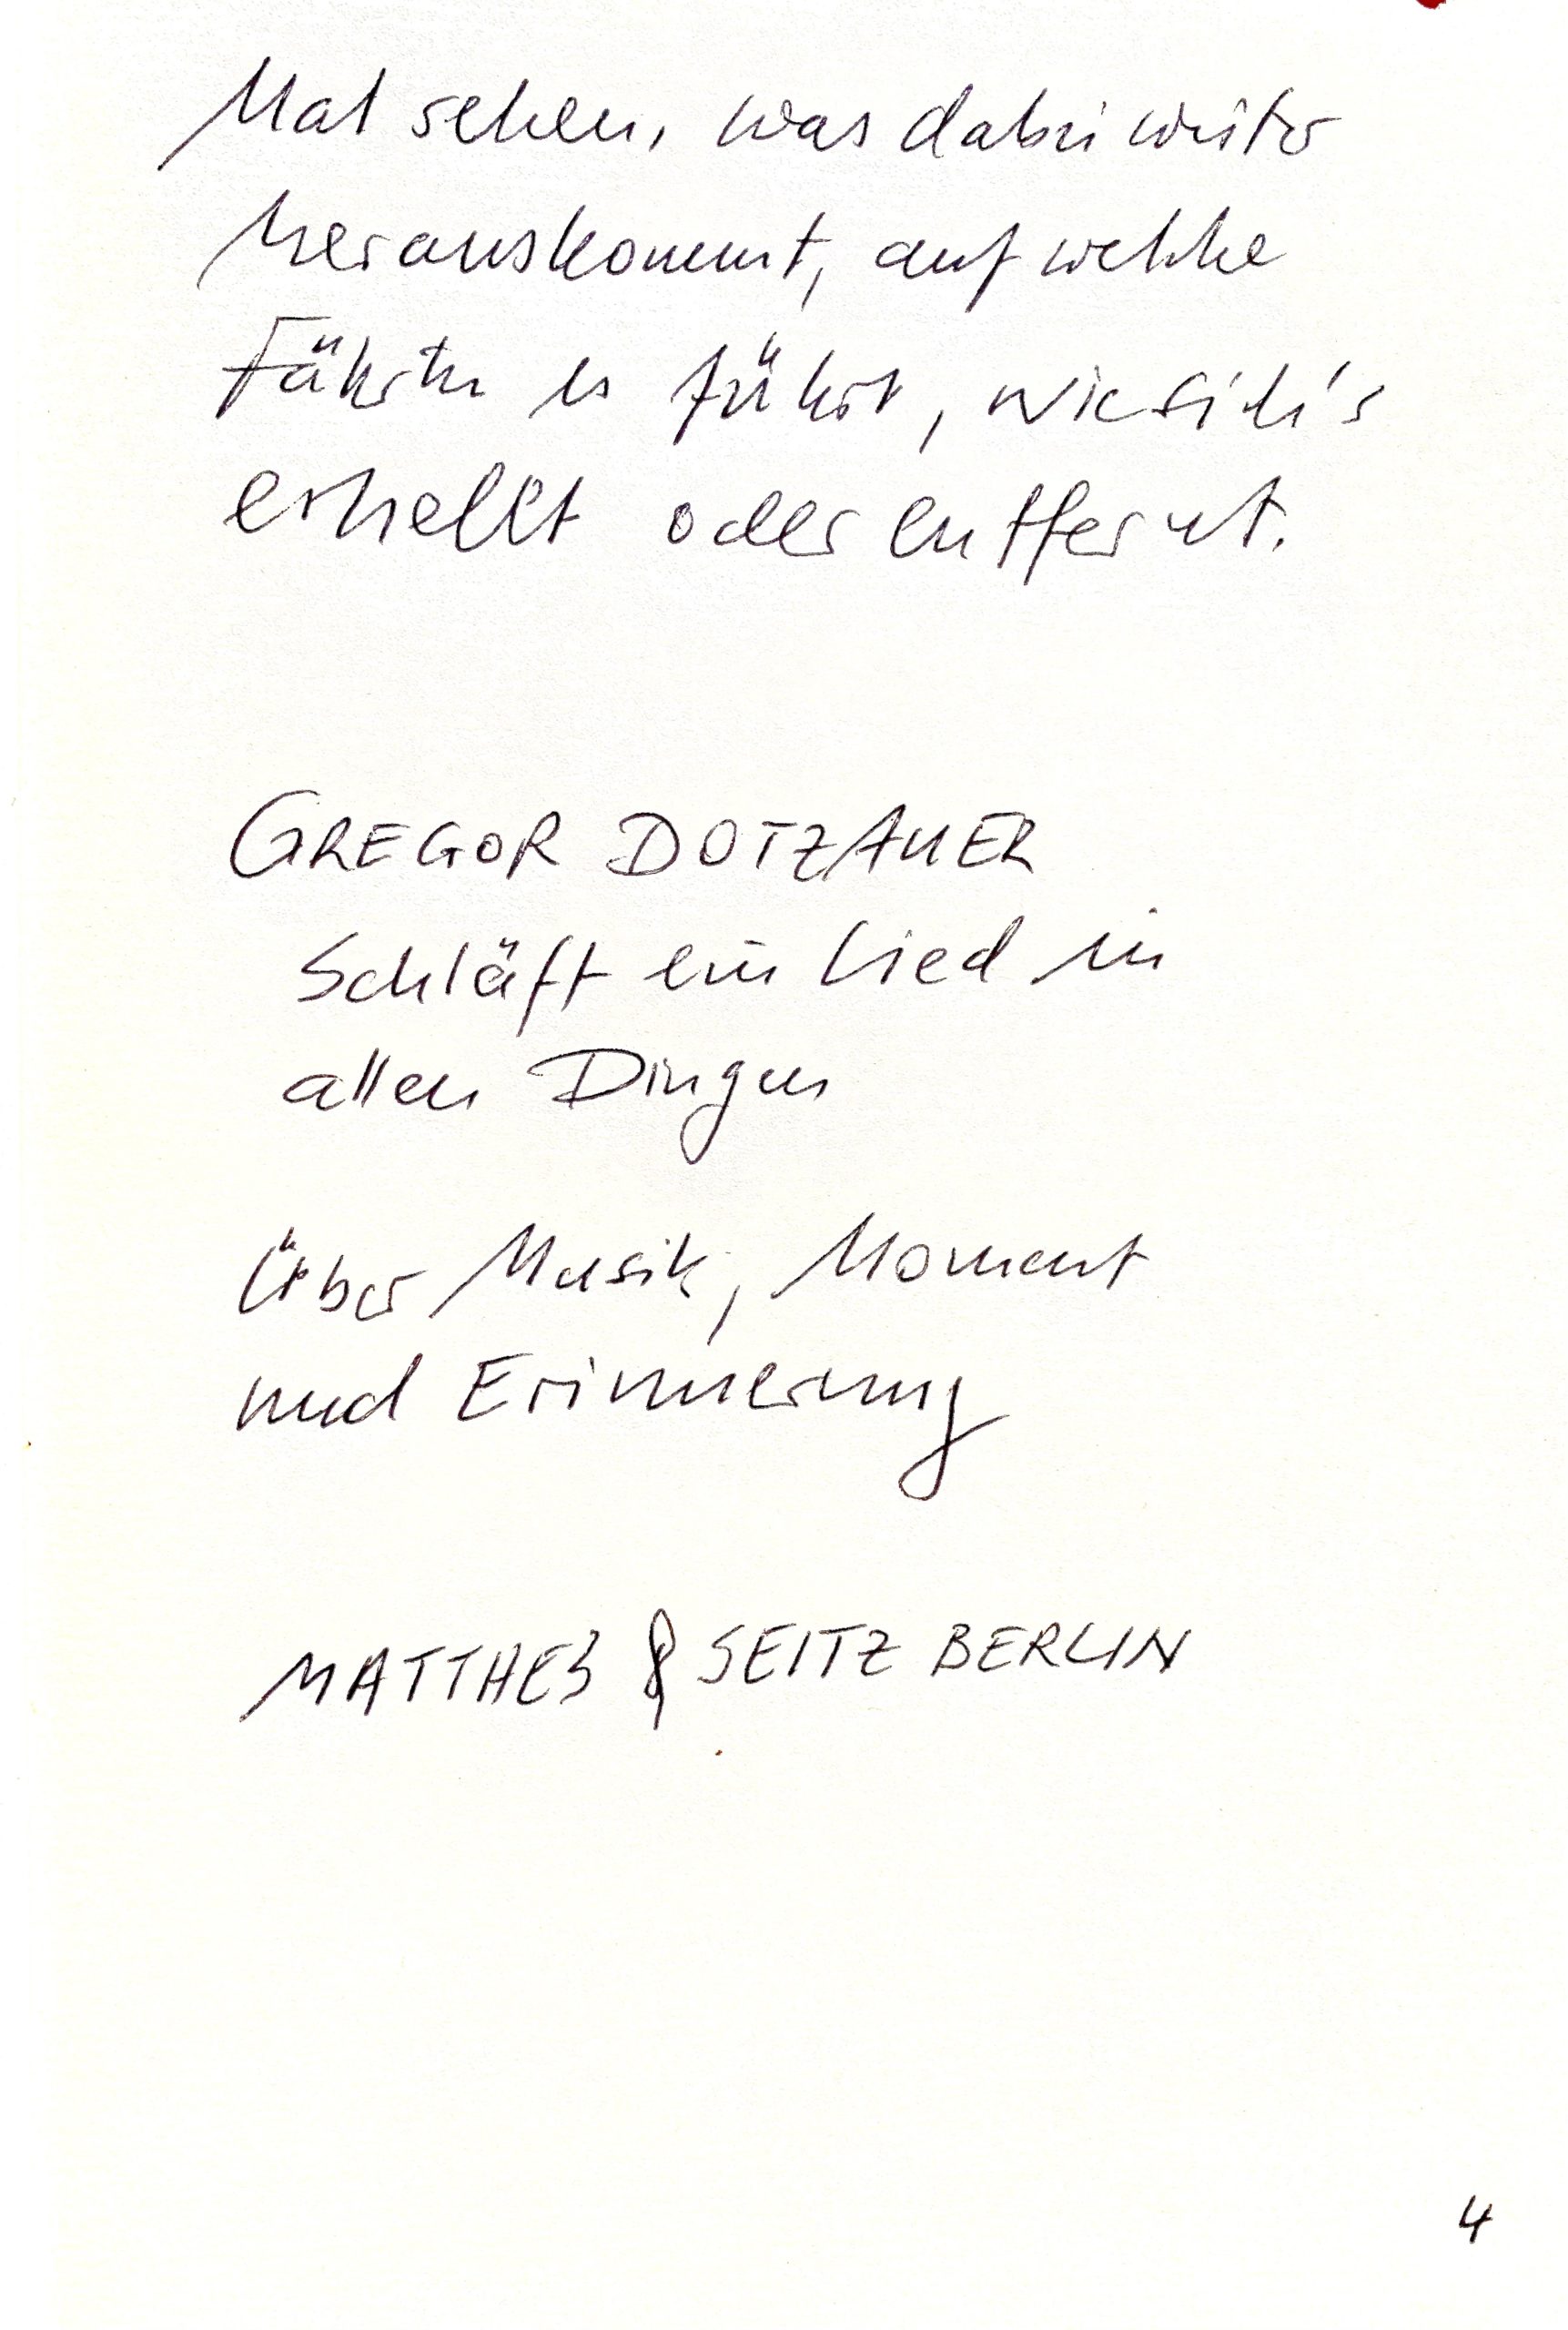 Mal sehen, was dabei weiter
herauskommt, auf welche
Fährte es führt, wie sich's
erhellt oder entfernt.
GREGOR DOTZAUER
Schläft ein Lied in
allen Dingen
Über Musik, Moment
und Erinnerung
MATTHES & SEITZ BERLIN
4